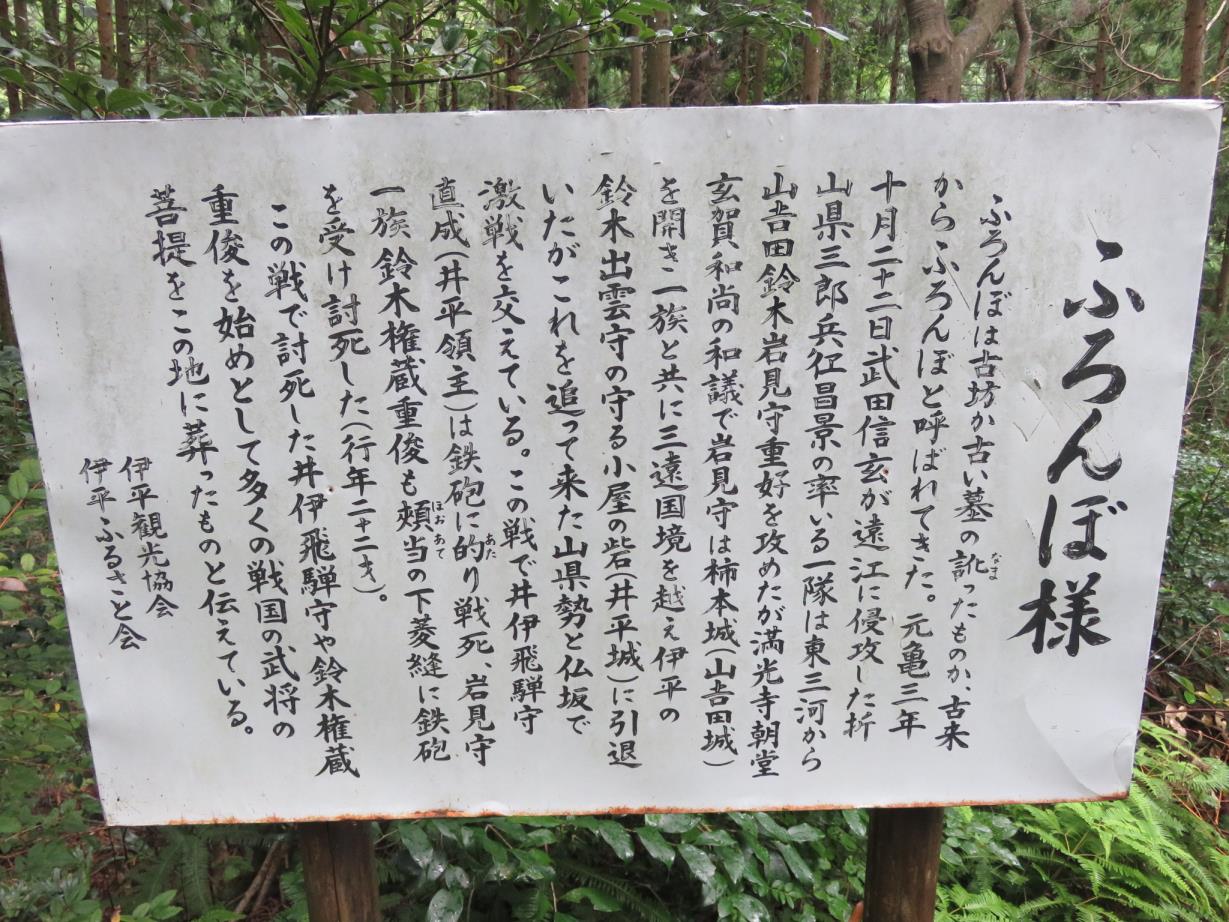 ふろんぼ様
ふろんぼは古坊か古い墓の訛ったものか、古来
なま
からふろんぼと呼ばれてきた。元亀三年
十月二十二日武田信玄が遠江に侵攻した折
山県三郎兵衛昌景の率いる一隊は東三河から
山吉田鈴木岩見守重好を攻めたが満光寺朝堂
玄賀和尚の和議で岩見守は柿本城(山吉田城)
を開き一族と共に三遠国境を越え伊平の
鈴木出雲守の守る小屋の砦(井平城)に引退
いたがこれを追って来た山県勢と仏坂で
激戦を交えている。この戦で井伊飛騨守
直成(井平領主)は鉄砲に的り戦死、岩見守
あた
一族鈴木権蔵重俊も頬当の下菱縫に鉄砲
ほおあて
を受け討死した(行年二十二才)。
この戦で討死した井伊飛騨守や鈴木権蔵
重俊を始めとして多くの戦国の武将の
菩提をこの地に葬ったものと伝えている。
伊平観光協会
伊平ふるさと会